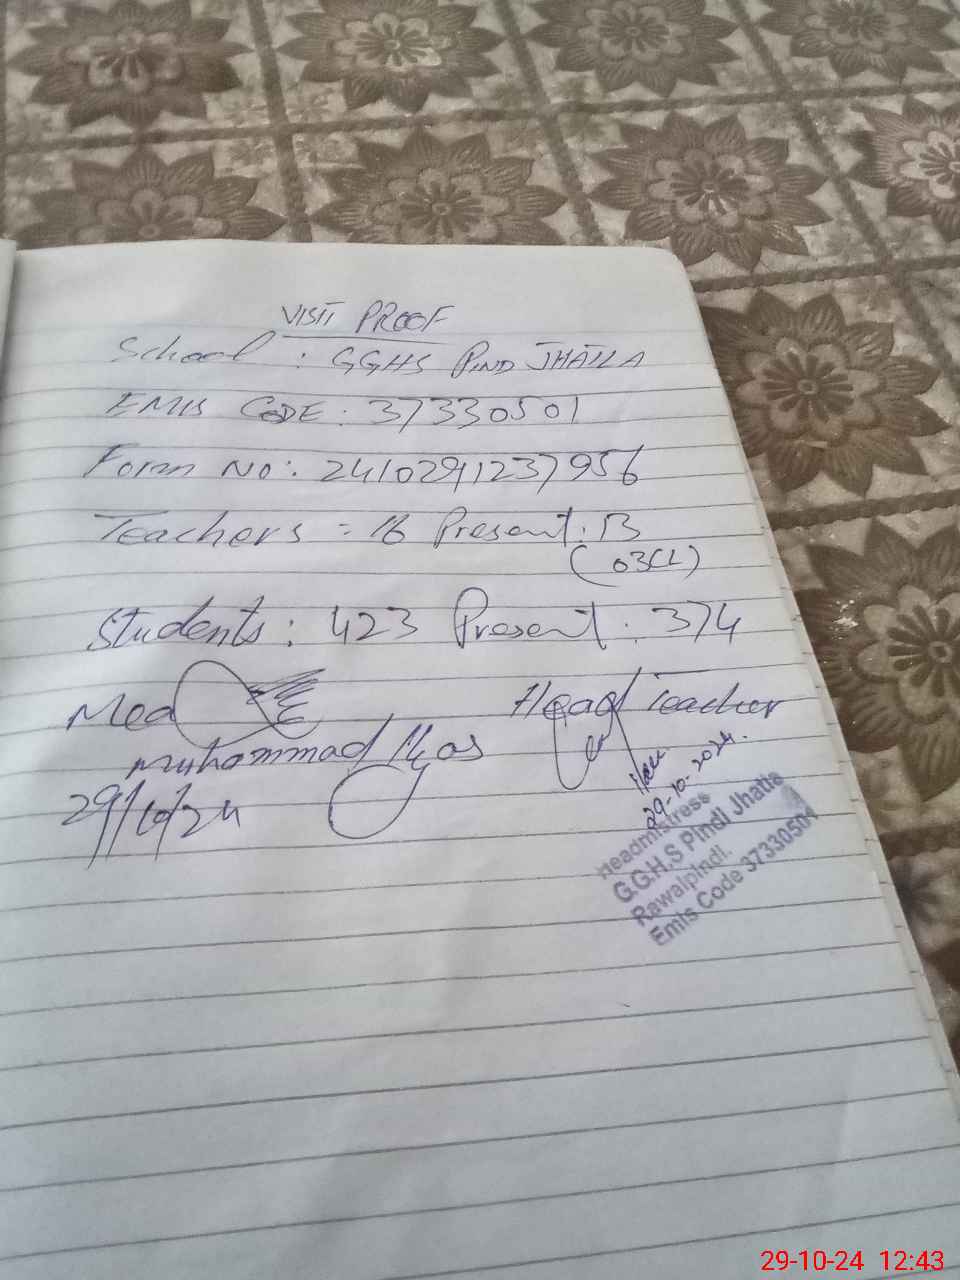 VISIT PROOF
School : GGHS PIND JHATLA
EMIS CODE : 37330501
Form No: 2410291237956
Teachers = 16 Present : 13
(03CL)
Students : 423 Present : 374
Mea
Head Teacher
Muhammad Ilyas
29/10/24
29-10-2024.
Headmistress
G.G.H.S Pindi Jhatla
Rawalpindi.
Emis Code 37330501
29-10-24 12:43